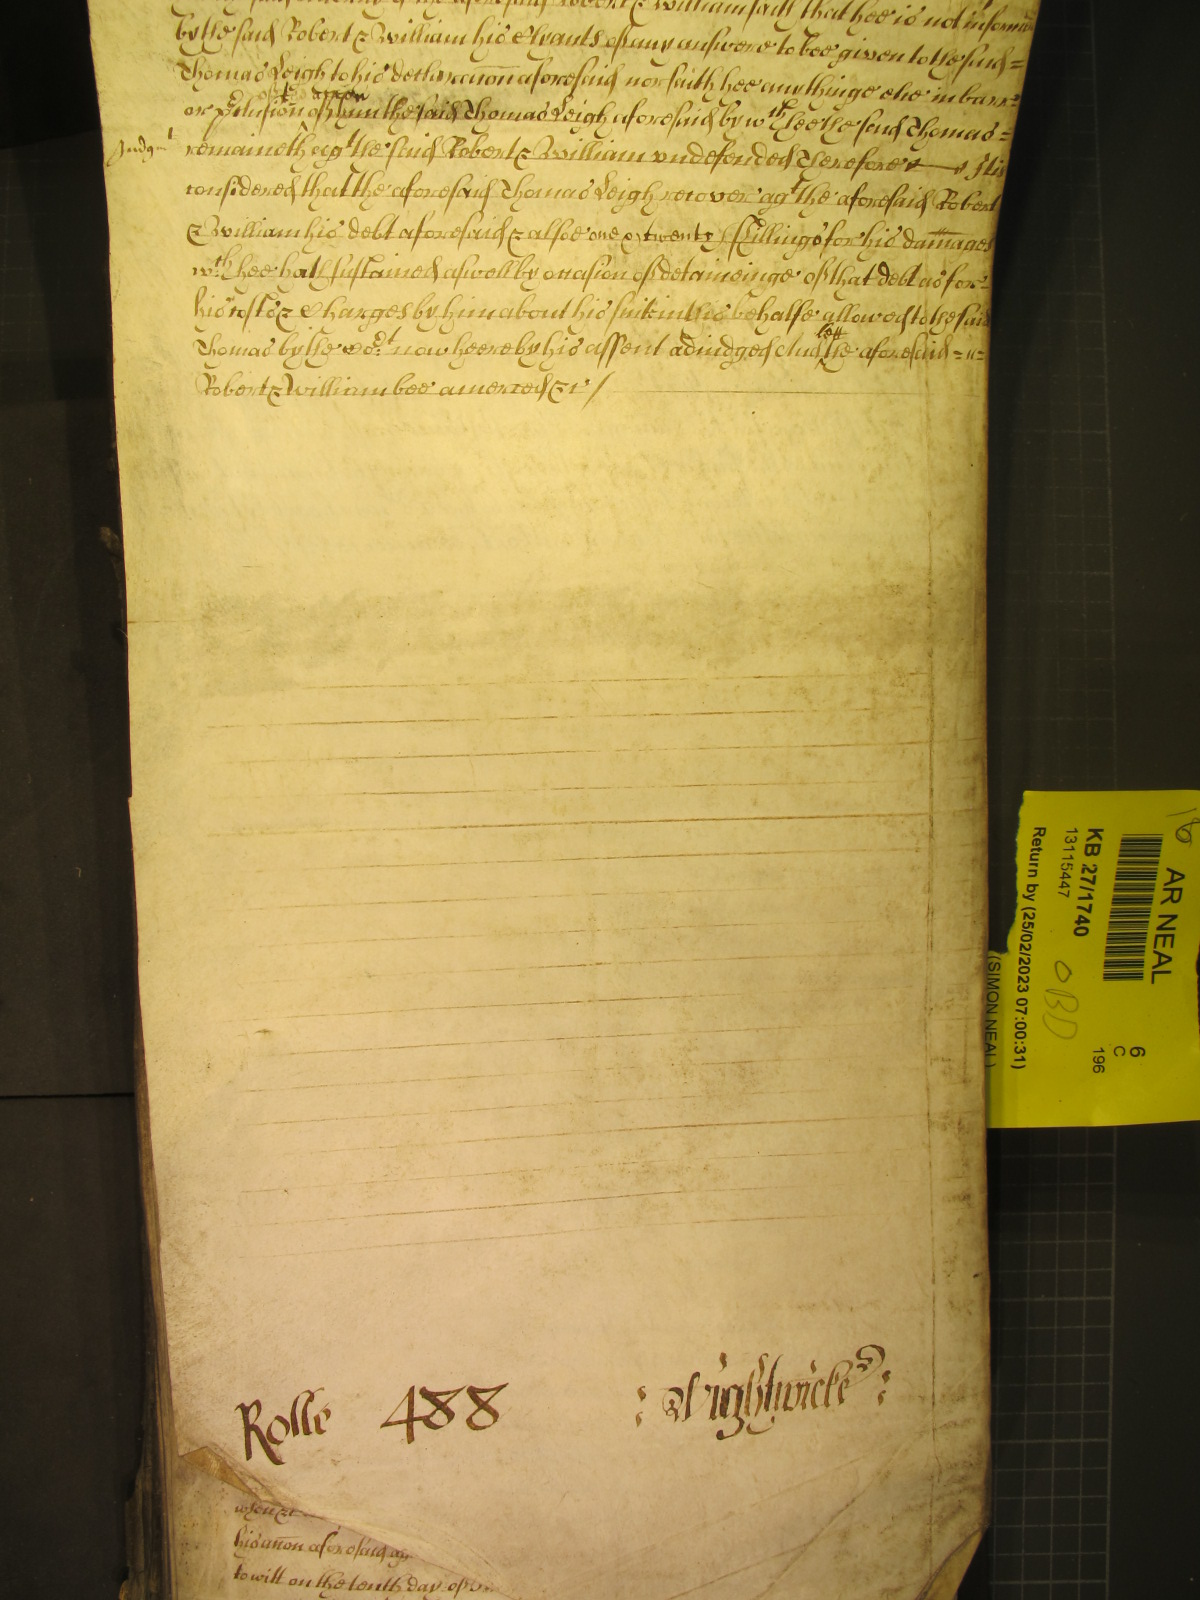 of the aforesaid Robert & William saith that hee is not informed
by the said Robert & William his Clyants of any answere to bee given to the said =
Thomas Leigh to his declaracon aforesaid nor saith hee anythinge else in barr
of the accon
or p'clusion of him the said Thomas Leigh aforesaid by wch hee the said Thomas =
Judgmt
remaineth agt the said Robert & William undefended Therefore It is
considered that the aforesaid Thomas Leigh recover agt the aforesaid Robert
& William his debt aforesaid & alsoe one & twenty shillings for his damages
wch hee hath sustained aswell by occasion of deteineinge of that debt as for
his costs & Charges by him about his suite in this behalfe allowed to the said
Thomas by the Cort now heere by his assent adiudged And
lett
the aforesaid = =
Robert & William bee amerced &c /
Rolle 488 : Wightwicke :
when &c
his accon aforesaid
to witt on the tenth day of
AR NEAL
KB 27/1740
13115447
Return by (25/02/2023 07:00:31)
(SIMON NEAL)
6
C
196
OBD
18